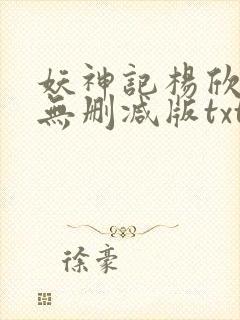 妖神記楊欣
無刪减版txt
徐豪